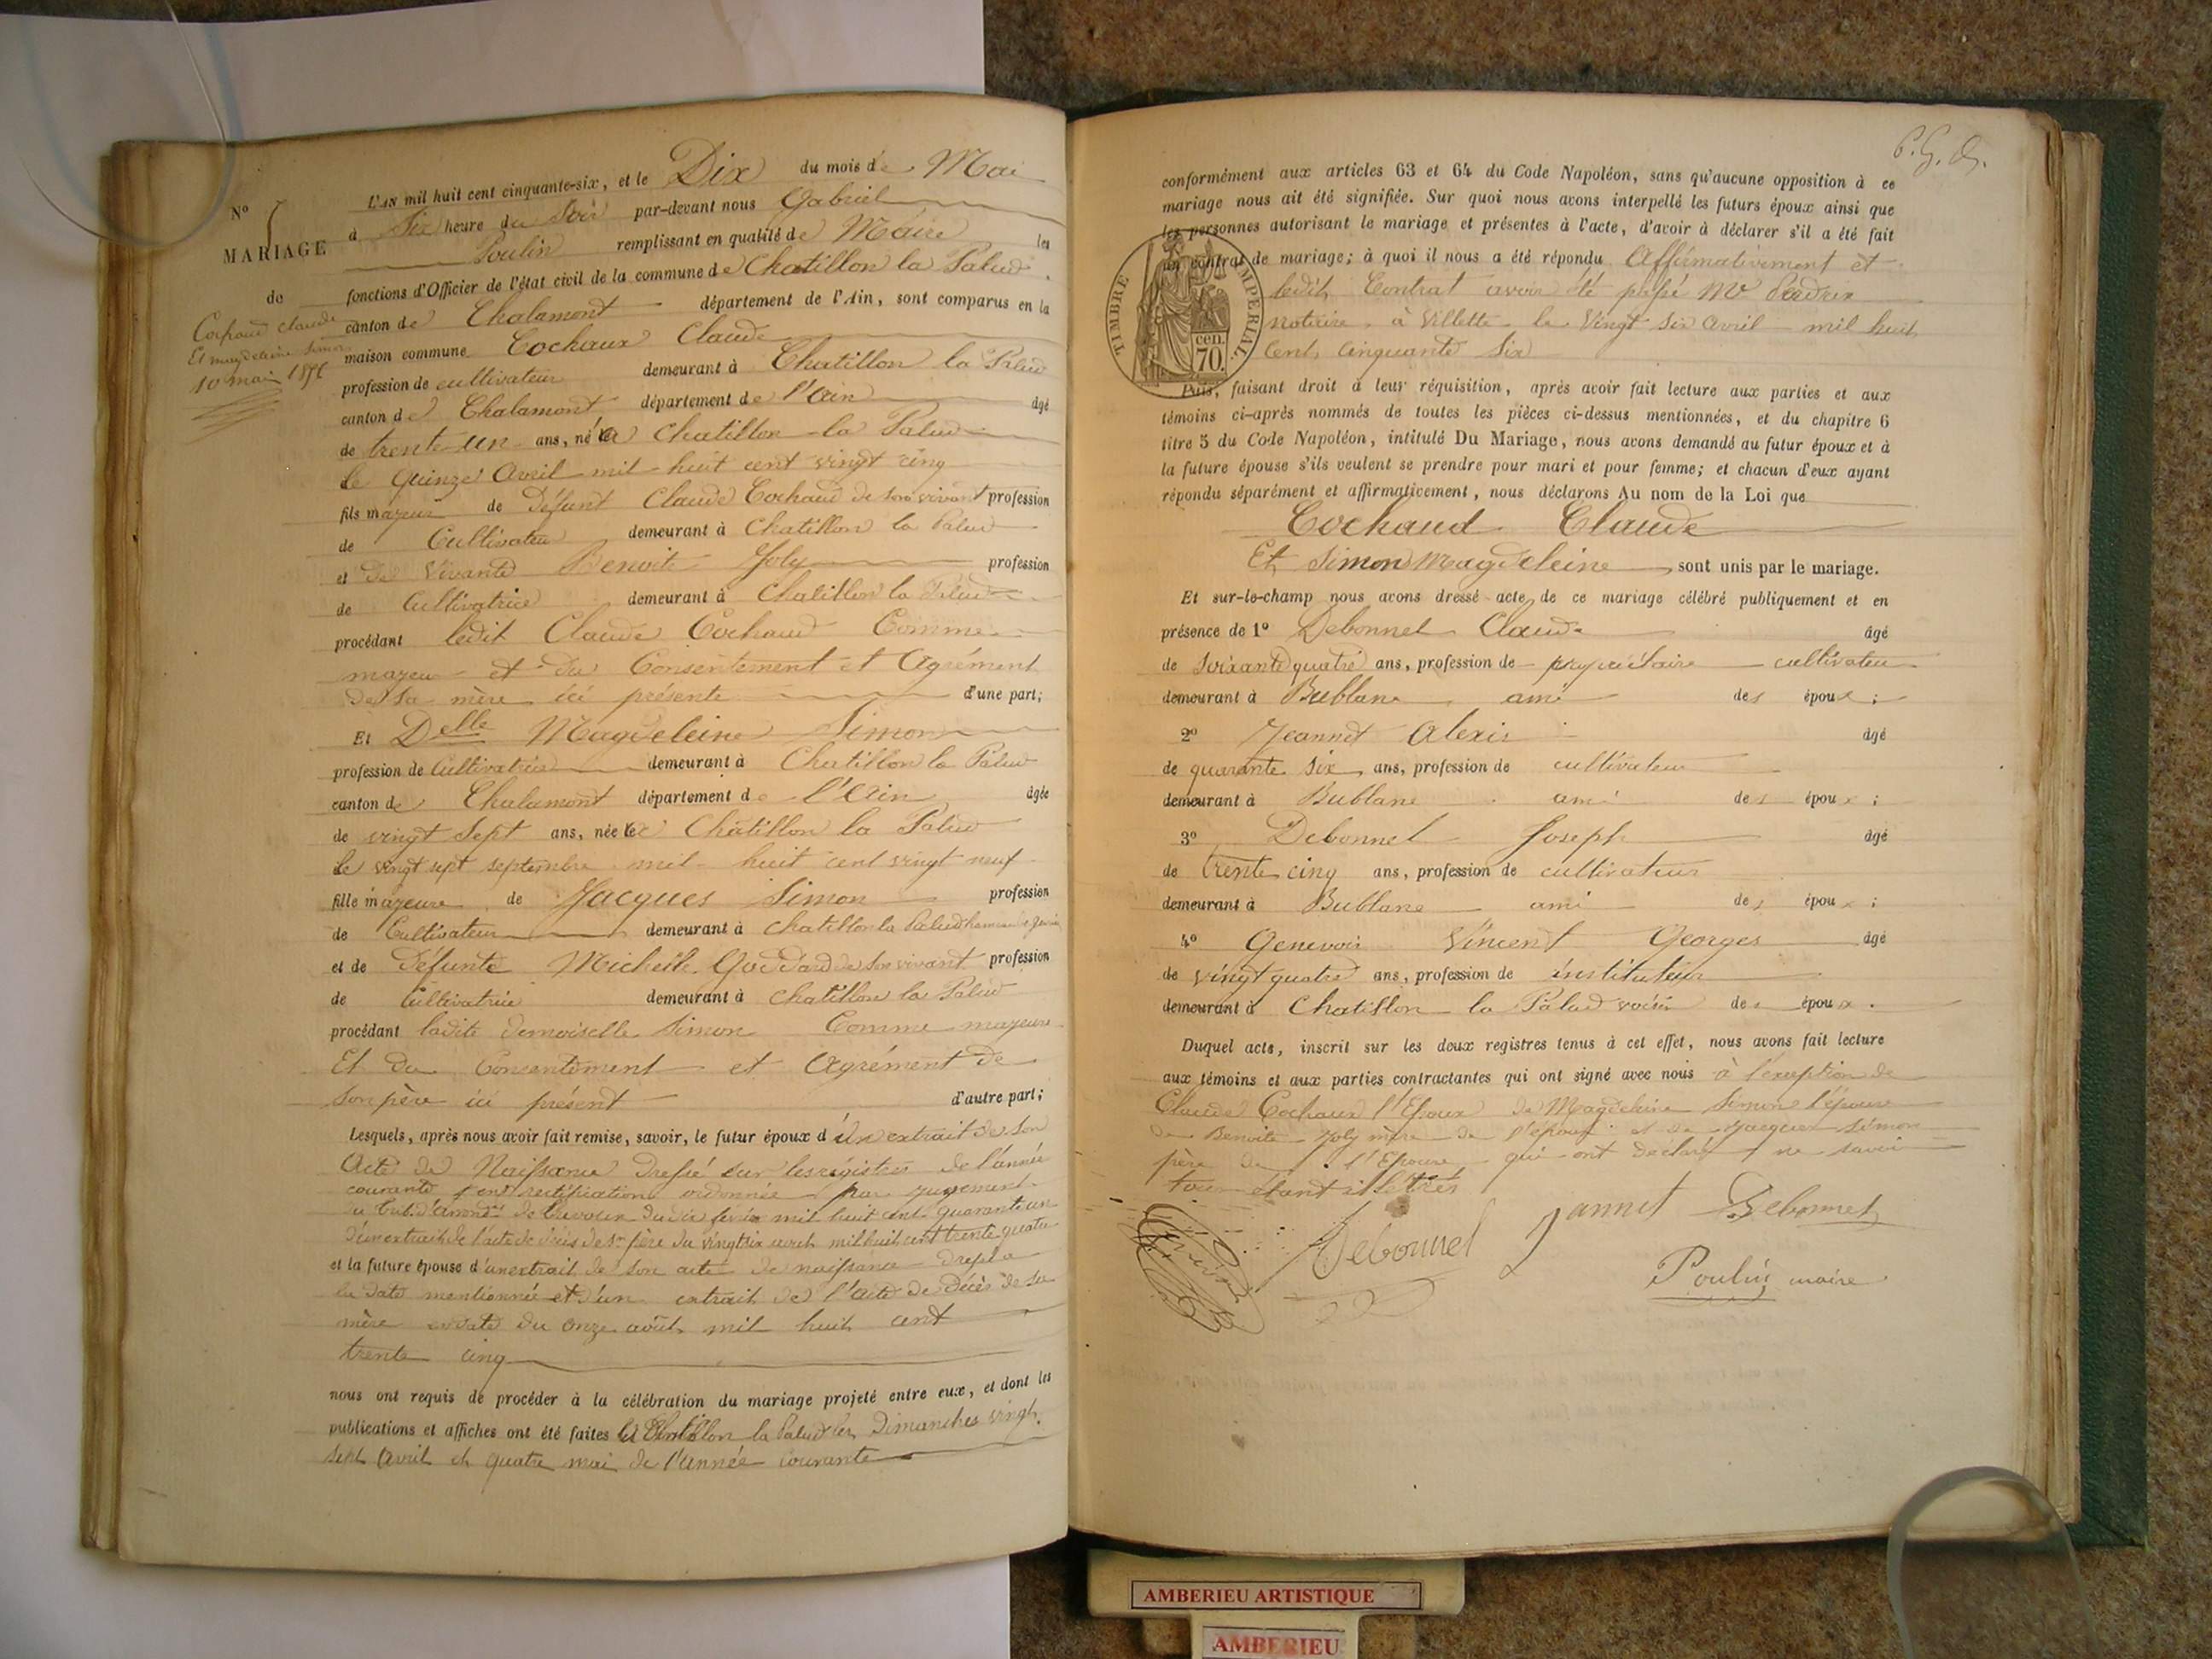 L'AN mil huit cent cinquante-six, et le Dix du mois de Mai
N°
à Six heure du Soir par-devant nous Gabriel
MARIAGE
Poulin remplissant en qualité de Maire les
de
fonctions d'Officier de l'état civil de la commune de Chatillon la Palud
Cochaud Claude
Et magdeleine Simon
10 mai 1856
canton de Chalamont département de l'Ain, sont comparus en la
maison commune Cochaux Claude
profession de cultivateur demeurant à Chatillon la Palud
canton de Chalamont département de l'Ain âgé
de trente-un ans, né à Chatillon la Palud
le quinze Avril mil huit cent vingt cinq
fils majeur de défunt Claude Cochaud de son vivant profession
de Cultivateur demeurant à Chatillon la Palud
et de vivante Benoite Joly profession
de Cultivatrice demeurant à Chatillon la Palud
procédant ledit Claude Cochaud Comme
majeur et du Consentement et Agrément
de sa mère ici présente d'une part;
Et Delle Magdeleine Simon
profession de Cultivatrice demeurant à Chatillon la Palud
canton de Chalamont département de l'Ain âgée
de vingt Sept ans, née à Chatillon la Palud
le vingt sept septembre mil huit cent vingt neuf
fille majeure de Jacques Simon profession
de Cultivateur demeurant à Chatillon la Palud hameau de
et de défunte Michelle Goddard de son vivant profession
de Cultivatrice demeurant à Chatillon la Palud
procédant ladite demoiselle Simon Comme majeure
Et du Consentement et Agrément de
son père ici présent d'autre part;
Lesquels, après nous avoir fait remise, savoir, le futur époux d'un extrait de son
Acte de Naissance dressé sur les registres de l'année
courante rectification ordonnée par jugement
du de trevoux du dix mil huit cent quarante un
d'un extrait de l'acte de décès de sn père du vingt six avril mil huit cent trente quatre
et la future épouse d'un extrait de son acte de naissance dressé a
la date mentionnée et d'un extrait de l'acte de décès de sa
mère en date du onze août mil huit cent
trente cinq
nous ont requis de procéder à la célébration du mariage projeté entre eux, et dont les
publications et affiches ont été faites à Chatillon la Palud les Dimanches vingt
sept Avril et quatre mai de l'année courante
conformément aux articles 63 et 64 du Code Napoléon, sans qu'aucune opposition à ce
mariage nous ait été signifiée. Sur quoi nous avons interpellé les futurs époux ainsi que
les personnes autorisant le mariage et présentes à l'acte, d'avoir à déclarer s'il a été fait
un contrat de mariage; à quoi il nous a été répondu Affirmativement et
ledit Contrat avoir été passé Me Perdrix
notaire à Villette le Vingt six avril mil huit
cent cinquante Six
TIMBRE IMPERIAL
cen.
70.
Puis, faisant droit à leur réquisition, après avoir fait lecture aux parties et aux
témoins ci-après nommés de toutes les pièces ci-dessus mentionnées, et du chapitre 6
titre 5 du Code Napoléon, intitulé Du Mariage, nous avons demandé au futur époux et à
la future épouse s'ils veulent se prendre pour mari et pour femme; et chacun d'eux ayant
répondu séparément et affirmativement, nous déclarons Au nom de la Loi que
Cochaud Claude
Et Simon Magdeleine sont unis par le mariage.
Et sur-le-champ nous avons dressé acte de ce mariage célébré publiquement et en
présence de 1° Debonnel Claude âgé
de Soixante quatre ans, profession de propriétaire cultivateur
demeurant à Bublane ami des époux ;
2° Jeannet Alexis âgé
de quarante six ans, profession de cultivateur
demeurant à Bublane ami des époux ;
3° Debonnel Joseph âgé
de trente cinq ans, profession de cultivateur
demeurant à Bublane ami des époux ;
4° Genevois Vincent Georges âgé
de vingt quatre ans, profession de instituteur
demeurant à Chatillon la Palud voisin des époux.
Duquel acte, inscrit sur les doux registres tenus à cet effet, nous avons fait lecture
aux témoins et aux parties contractantes qui ont signé avec nous à l'exception de
Claude Cochaux l'Epoux de Magdeleine Simon l'épouse
de Benoite Joly mère de l'époux et de Jacques Simon
père de l'Epouse qui ont déclaré ne savoir
tous étant illétrés
Debonnel Jannet Debonnel
Poulin maire
AMBERIEU ARTISTIQUE
AMBERIEU